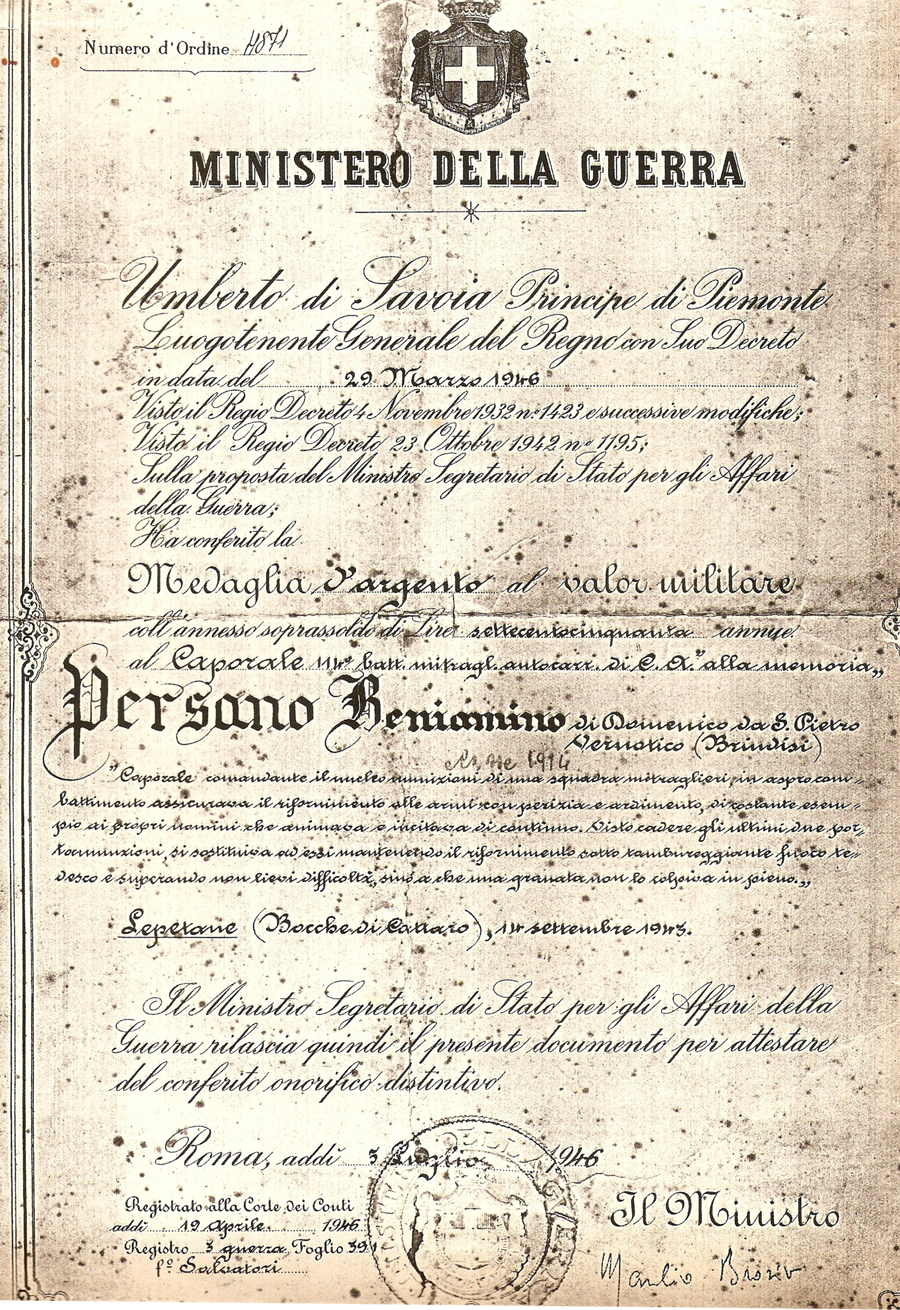 Numero d'Ordine 4871
MINISTERO DELLA GUERRA
Umberto di Savoia Principe di Piemonte
Luogotenente Generale del Regno con Suo Decreto
in data del 29 Marzo 1946
Visto il Regio Decreto 4 Novembre 1932 n° 1423 e successive modifiche;
Visto il Regio Decreto 23 Ottobre 1942 n° 1195;
Sulla proposta del Ministro Segretario di Stato per gli Affari
della Guerra;
Ha conferito la
Medaglia d'argento al valor militare
coll'annesso soprassoldo di Lire settecentocinquanta annue
al Caporale 114° batt. mitragl. autocarr. di C. A. "alla memoria„
Persano Beniamino di Domenico da S. Pietro
Vernotico (Brindisi)
Classe 1914
"Caporale comandante il nucleo munizioni di una squadra mitraglieri, in aspro com-
battimento assicurava il rifornimento alle armi con perizia e ardimento, di costante esem-
pio ai propri uomini che animava e incitava di continuo. Visto cadere gli ultimi due por-
tamunizioni, si sostituiva ad essi mantenendo il rifornimento sotto tambureggiante fuoco te-
desco e superando non lievi difficoltà, sino a che una granata non lo colpiva in pieno.„
Lepetane (Bocche di Cattaro), 14 settembre 1943.
Il Ministro Segretario di Stato per gli Affari della
Guerra rilascia quindi il presente documento per attestare
del conferito onorifico distintivo.
Roma, addì 3 Luglio 1946
Registrato alla Corte dei Conti
addì 19 Aprile 1946
Registro 3 guerra Foglio 391
f° Salvatori
Il Ministro
Manlio Brosio